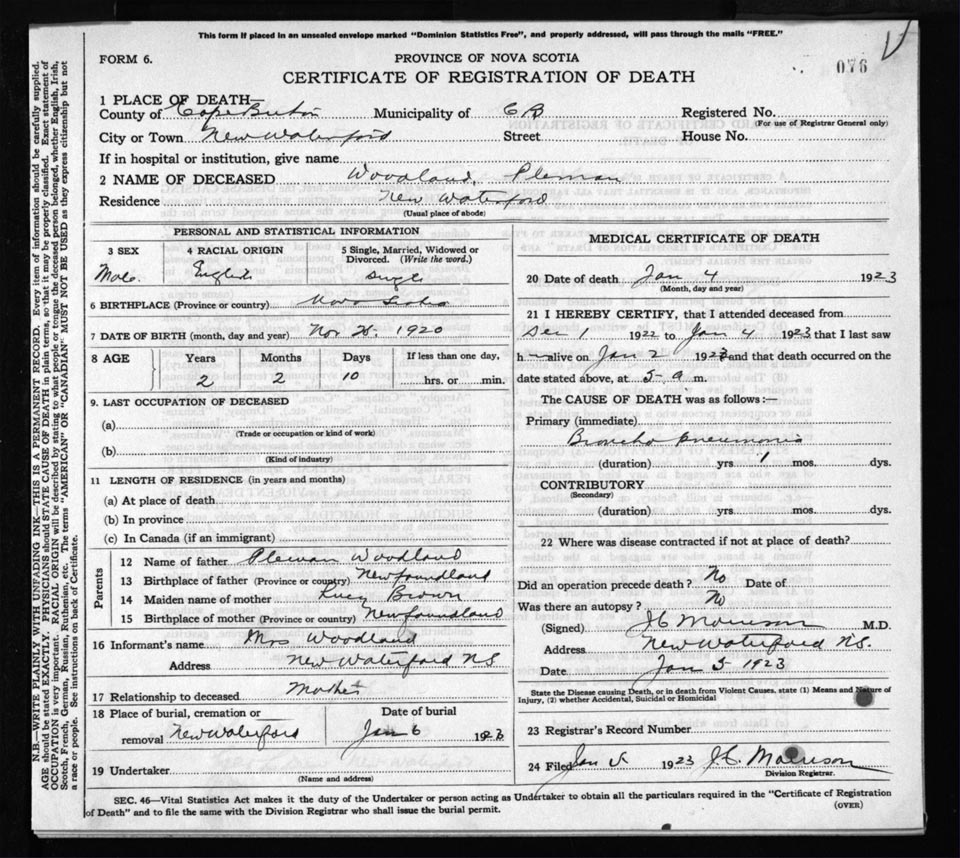 This form if placed in an unsealed envelope marked "Dominion Statistics Free", and properly addressed, will pass through the mails "FREE."
FORM 6.
PROVINCE OF NOVA SCOTIA
076
CERTIFICATE OF REGISTRATION OF DEATH
1 PLACE OF DEATH—
County of Cape Breton Municipality of C B Registered No.
(For use of Registrar General only)
City or Town New Waterford Street House No.
If in hospital or institution, give name
2 NAME OF DECEASED Woodland, Pleman
Residence New Waterford
(Usual place of abode)
PERSONAL AND STATISTICAL INFORMATION
3 SEX 4 RACIAL ORIGIN 5 Single, Married, Widowed or Divorced. (Write the word.)
Male English Single
6 BIRTHPLACE (Province or country) Nova Scotia
7 DATE OF BIRTH (month, day and year) Nov 25 1920
8 AGE Years Months Days If less than one day,
2 2 10 hrs. or min.
9. LAST OCCUPATION OF DECEASED
(a)
(Trade or occupation or kind of work)
(b)
(Kind of industry)
11 LENGTH OF RESIDENCE (in years and months)
(a) At place of death
(b) In province
(c) In Canada (if an immigrant)
Parents
12 Name of father Pleman Woodland
13 Birthplace of father (Province or country) Newfoundland
14 Maiden name of mother Lucy Brown
15 Birthplace of mother (Province or country) Newfoundland
16 Informant's name Mrs Woodland
Address New Waterford NS
17 Relationship to deceased Mother
18 Place of burial, cremation or Date of burial
removal New Waterford Jan 6 1923
19 Undertaker
(Name and address)
MEDICAL CERTIFICATE OF DEATH
20 Date of death Jan 4 1923
(Month, day and year)
21 I HEREBY CERTIFY, that I attended deceased from
Dec 1 1922 to Jan 4 1923 that I last saw
h alive on Jan 2 1923 and that death occurred on the
date stated above, at 5 a m.
The CAUSE OF DEATH was as follows:—
Primary (immediate)
Broncho pneumonia
(duration) yrs. 1 mos. dys.
CONTRIBUTORY
(Secondary)
(duration) yrs. mos. dys.
22 Where was disease contracted if not at place of death?
Did an operation precede death? No Date of
Was there an autopsy? No
(Signed) J C Morrison M.D.
Address New Waterford NS.
Date Jan 5 1923
State the Disease causing Death, or in death from Violent Causes, state (1) Means and Nature of
Injury, (2) whether Accidental, Suicidal or Homicidal
23 Registrar's Record Number
24 Filed Jan 5 1923 J. C. Morrison
Division Registrar.
SEC. 46—Vital Statistics Act makes it the duty of the Undertaker or person acting as Undertaker to obtain all the particulars required in the "Certificate of Registration
of Death" and to file the same with the Division Registrar who shall issue the burial permit.
(OVER)
N.B.—WRITE PLAINLY WITH UNFADING INK—THIS IS A PERMANENT RECORD. Every item of information should be carefully supplied.
AGE should be stated EXACTLY. PHYSICIANS should STATE CAUSE OF DEATH in plain terms, so that it may be properly classified. Exact statement of
OCCUPATION is very important. RACIAL ORIGIN will be described by stating to what people or tongue the deceased person belonged, whether English, Irish,
Scotch, French, German, Russian, Ruthenian, etc. The terms "AMERICAN" OR "CANADIAN" MUST NOT BE USED as they express citizenship but not
a race or people. See instructions on back of Certificate.